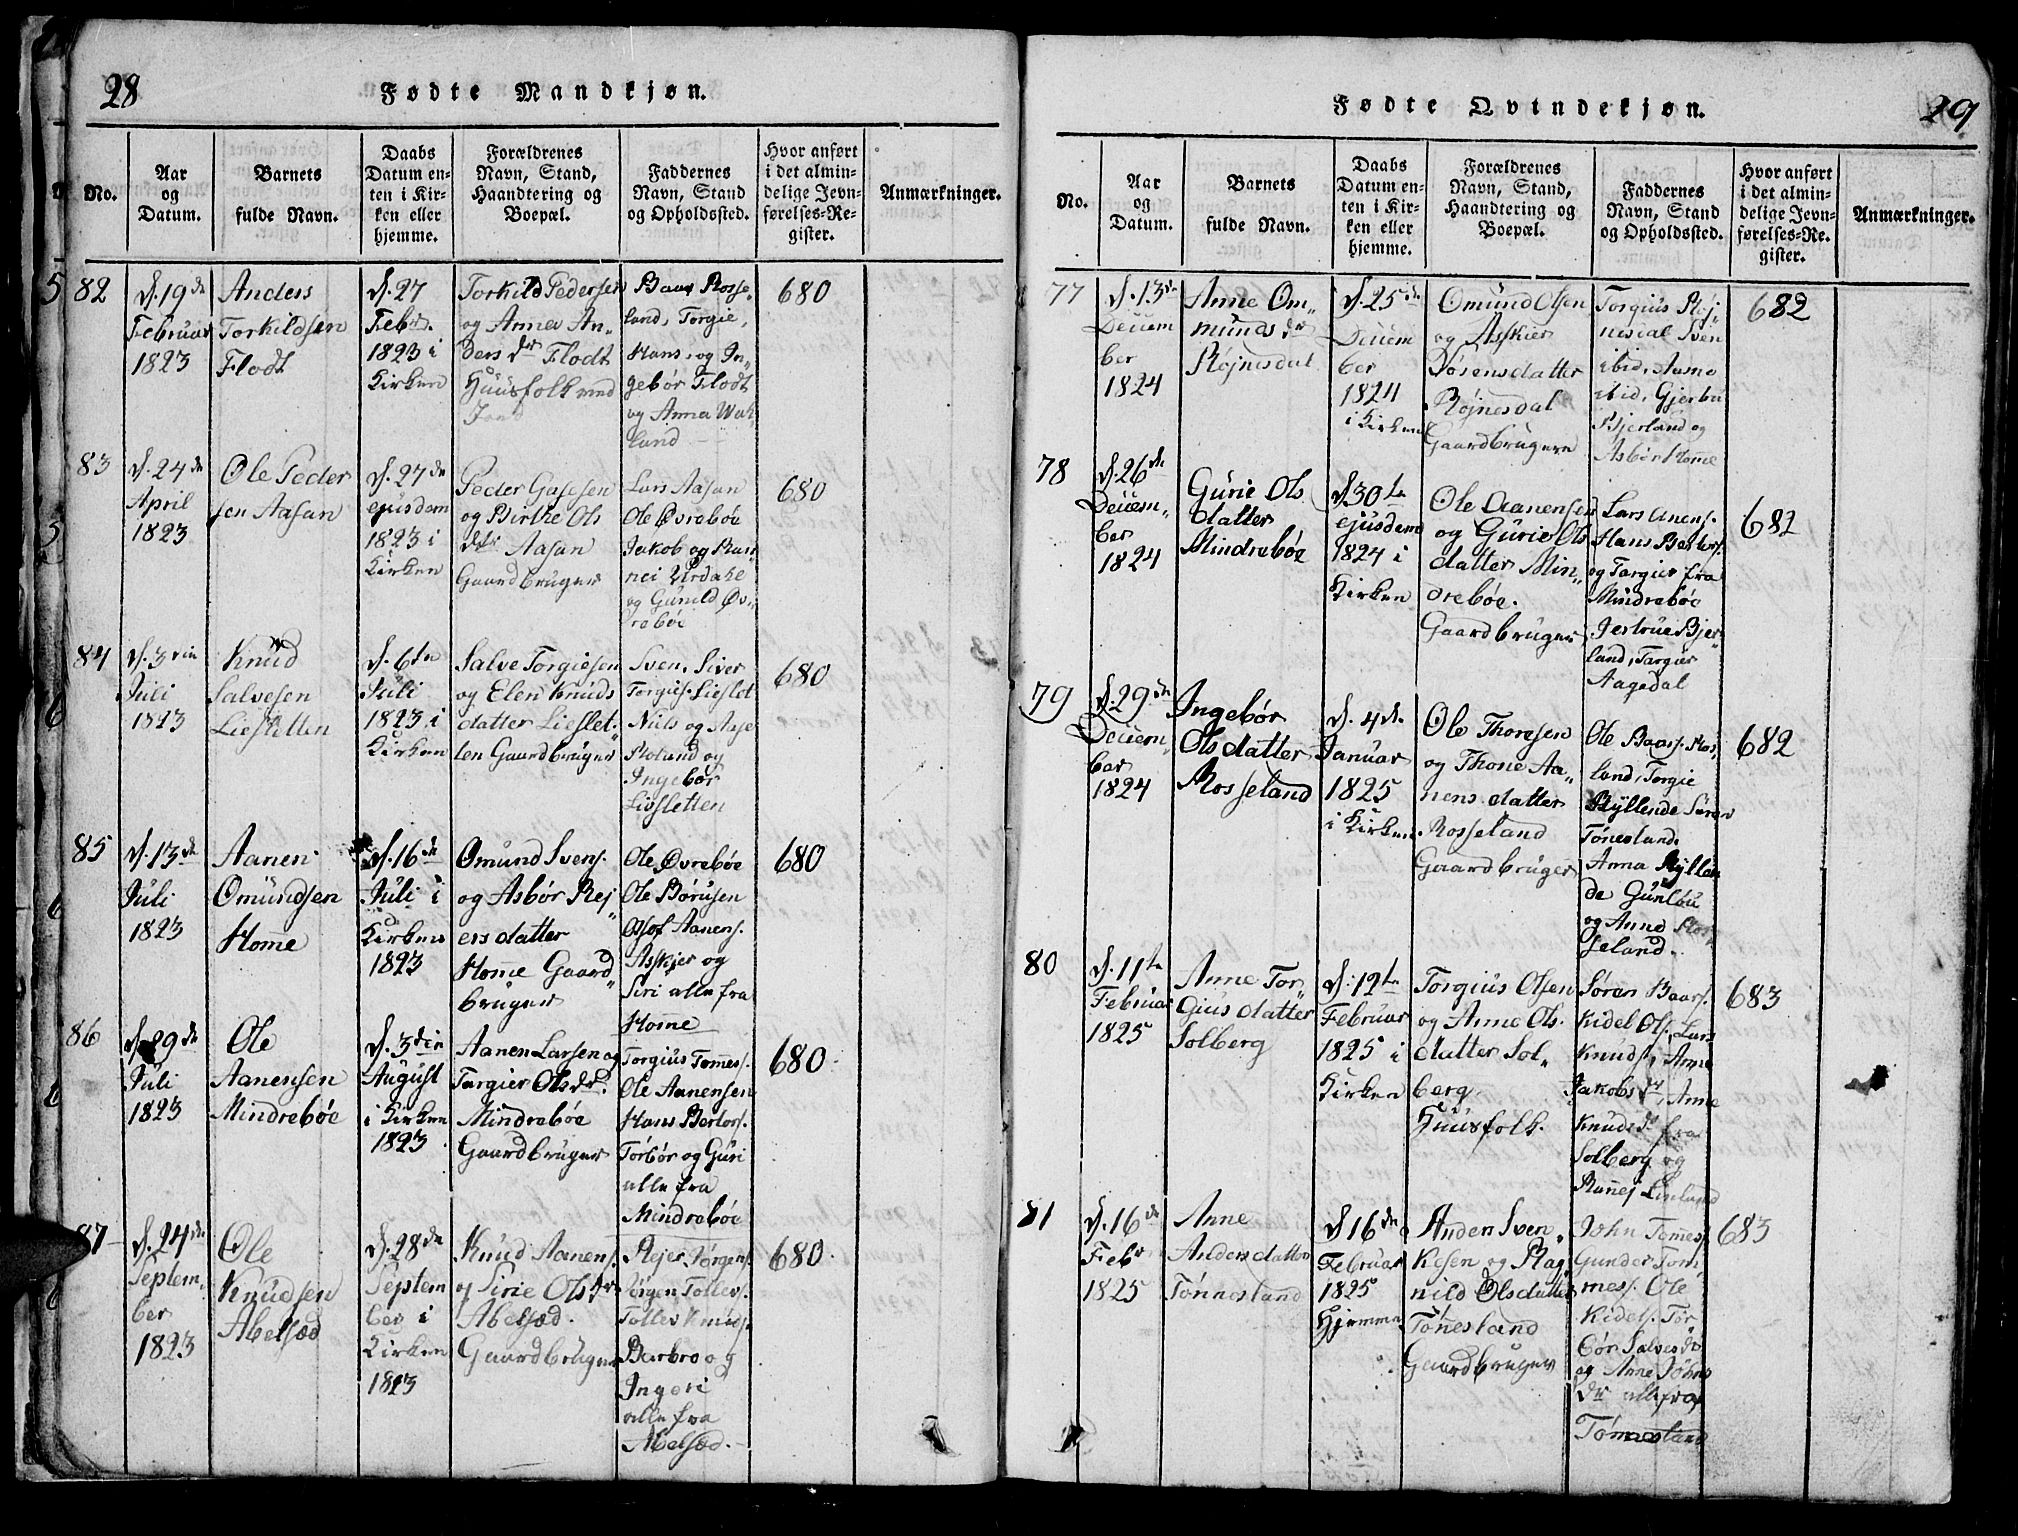 28
Fødte Mandkjøn.
No.
Aar
og
Datum.
Barnets
fulde Navn.
Daabs
Datum en-
ten i Kir-
ken eller
hjemme.
Forældrenes
Navn, Stand,
Haandtering og
Boepæl.
Faddernes
Navn, Stand
og Opholdssted.
Hvor anført
i det almin-
delige Jevn-
førelses-Re-
gister.
Anmærkninger.
82
d. 19de
Februar
1823
Anders
Torkildsen
Flodt
d. 27
Febr.
1823 i
Kirken
Torkild Pedersen
og Anna An„
ders dr Flodt
Huusfolk med
Jord
Baar Rosse„
land, Torgie,
Hans, og In„
gebør Flodt
og Anna
land
680
83
d. 24de
April
1823
Ole Peder
sen Aasan
d. 27de
ejusdem
1823 i
Kirken
Peder
og Birthe Ols
dtr Aasan
Gaardbruger
Lars Aasan
Ole Øvrebøe
Jakob og Ran„
nei Urdahl
og Gunild Øv„
rebøe
680
84
d. 3die
Juli
1823
Knud
Salvesen
Liesletten
d. 6te
Juli
1823 i
Kirken
Salve Torgiesen
og Elen Knuds
datter Lieslet„
ten Gaardbruger
Sven, Siver
Torgies. Lieslet
Nils og Aase
og
Ingebør
Liesletten
680
85
d. 13de
Juli
1823
Aanen
Omundsen
Home
d. 16de
Juli i
Kirken
1823
Omund Svens.
og Asbør Rej„
ersdatter
Home Gaard„
bruger
Ole Øvrebøe
Ole Børusen
Olof Aanens.
Asskjer og
Siri alle fra
Home
680
86
d. 29de
Juli
1823
Ole
Aanensen
Mindrebøe
d. 3die
August
i Kirken
1823
Aanen Larsen og
Targier Ols dr.
Mindrebøe
Gaardbruger
Torgius Tomes.
Ole Aanensen
Hans Bertors.
Torbør og Guri
alle fra
Mindrebøe
680
87
d. 24de
Septem„
ber
1823
Ole
Knudsen
Abelsæd
d. 28de
Septem
ber i
Kirken
1823
Knud Aanens.
og Sirie Ols dr
Abelsæd.
Gaardbruger
Rejer Jørgens.
Jørgen Tollevs.
Tollev Knuds.
Barbro og
Ingeri
alle fra
Abelsæd.
680
Fødte Qvindekjøn.
29
No.
Aar
og
Datum.
Barnets
fulde Navn.
Daabs
Datum en-
ten i Kir-
ken eller
hjemme.
Forældrenes
Navn, Stand,
Haandtering og
Boepæl.
Faddernes
Navn, Stand
og Opholdssted.
Hvor anført
i det almin-
delige Jevn-
førelses-Re-
gister.
Anmærkninger.
77
d. 13de
Decem
ber
1824
Anne Om„
munds dr
Røjnesdal
d. 25de
Decem
ber
1824
i Kirken
Omund Olsen
og Asskier
Sørensdatter
Røjnesdal
Gaardbrugere
Torgius Røj„
nesdal Sven
ibid, Aasne
ibid, Gjerbu
Bjerland og
Asbør Home
682
78
d. 26de
Decem„
ber
1824
Gurie Ols
datter
Mindrebøe
d 30te
ejusdem
1824 i
Kirken
Ole Aanensen
og Gurie Ols
datter Min„
drebøe.
Gaardbruger
Lars Anens.
Hans Bertors.
og Targier fra
Mindrebøe
Jestrue Bjer„
land, Targier
Aagedal
682
79
d. 29de
Decem„
ber
1824
Ingebør
Olsdatter
Rosseland
d. 4de
Januar
1825
i Kirken
Ole Thoresen
og Thone Aa„
nensdatter
Rosseland
Gaardbruger
Ole Baars. Ros„
land, Torgie
Ryllende Søren
Tønesland.
Anna Ryllen
de Gunlou
og Anne Ros„
seland.
682
80
d. 11te
Februar
1825
Anne Tor„
giusdatter
Solberg
d. 12te
Februar
1825 i
Kirken
Torgius Olsen
og Anne Ols.
datter Sol„
berg.
Huusfolk.
Søren Baars.
Kidel Ols., Lars
Knuds., Anne
Jakobs dr, Anne
Knuds dr fra
Solberg og
Ranej Linland
683
81
d. 16de
Febr
1825
Anne
Andersdatter
Tønnesland
d 16de
Februar
1825
Hjemme
Anden Sven„
kesen og Rag
nild Olsdatter
Tønesland
Gaardbruger
John Tomes.
Gunder Tom„
mes. Ole
Kidels. Tor„
bør Salves dr
og Anne Johns
dr alle fra
Tønnesland
683